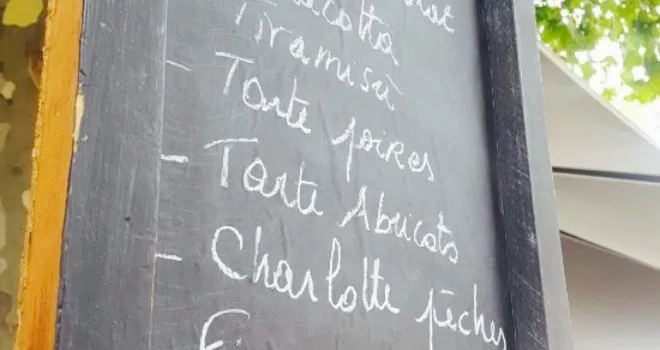 Tiramisù
- Tarte poires
- Tarte Abricots
- Charlotte pêches